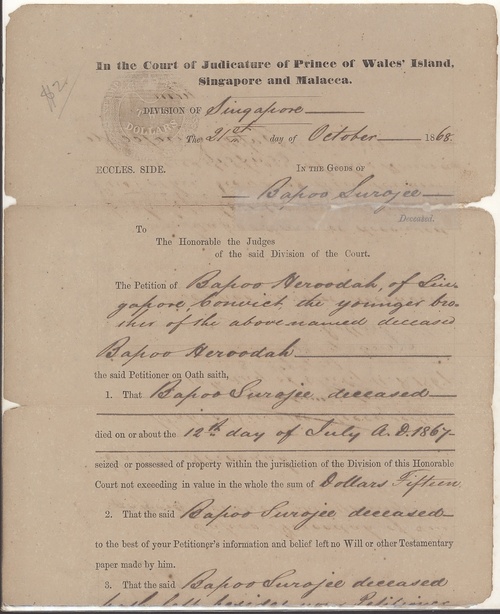 $2
In the Court of Judicature of Prince of Wales' Island,
Singapore and Malacca.
DOLLARS
DIVISION OF Singapore
The 21st day of October 1868.
ECCLES. SIDE. IN THE GOODS OF
Bapoo Surojee
Deceased.
To
The Honorable the Judges
of the said Division of the Court.
The Petition of Bapoo Heroodah, of Sin-
gapore, Convict, the younger bro-
ther of the above named deceased
Bapoo Heroodah
the said Petitioner on Oath saith,
1. That Bapoo Surojee deceased
died on or about the 12th day of July A.D. 1867
seized or possessed of property within the jurisdiction of the Division of this Honorable
Court not exceeding in value in the whole the sum of Dollars Fifteen
2. That the said Bapoo Surojee deceased
to the best of your Petitioner's information and belief left no Will or other Testamentary
paper made by him.
3. That the said Bapoo Surojee deceased